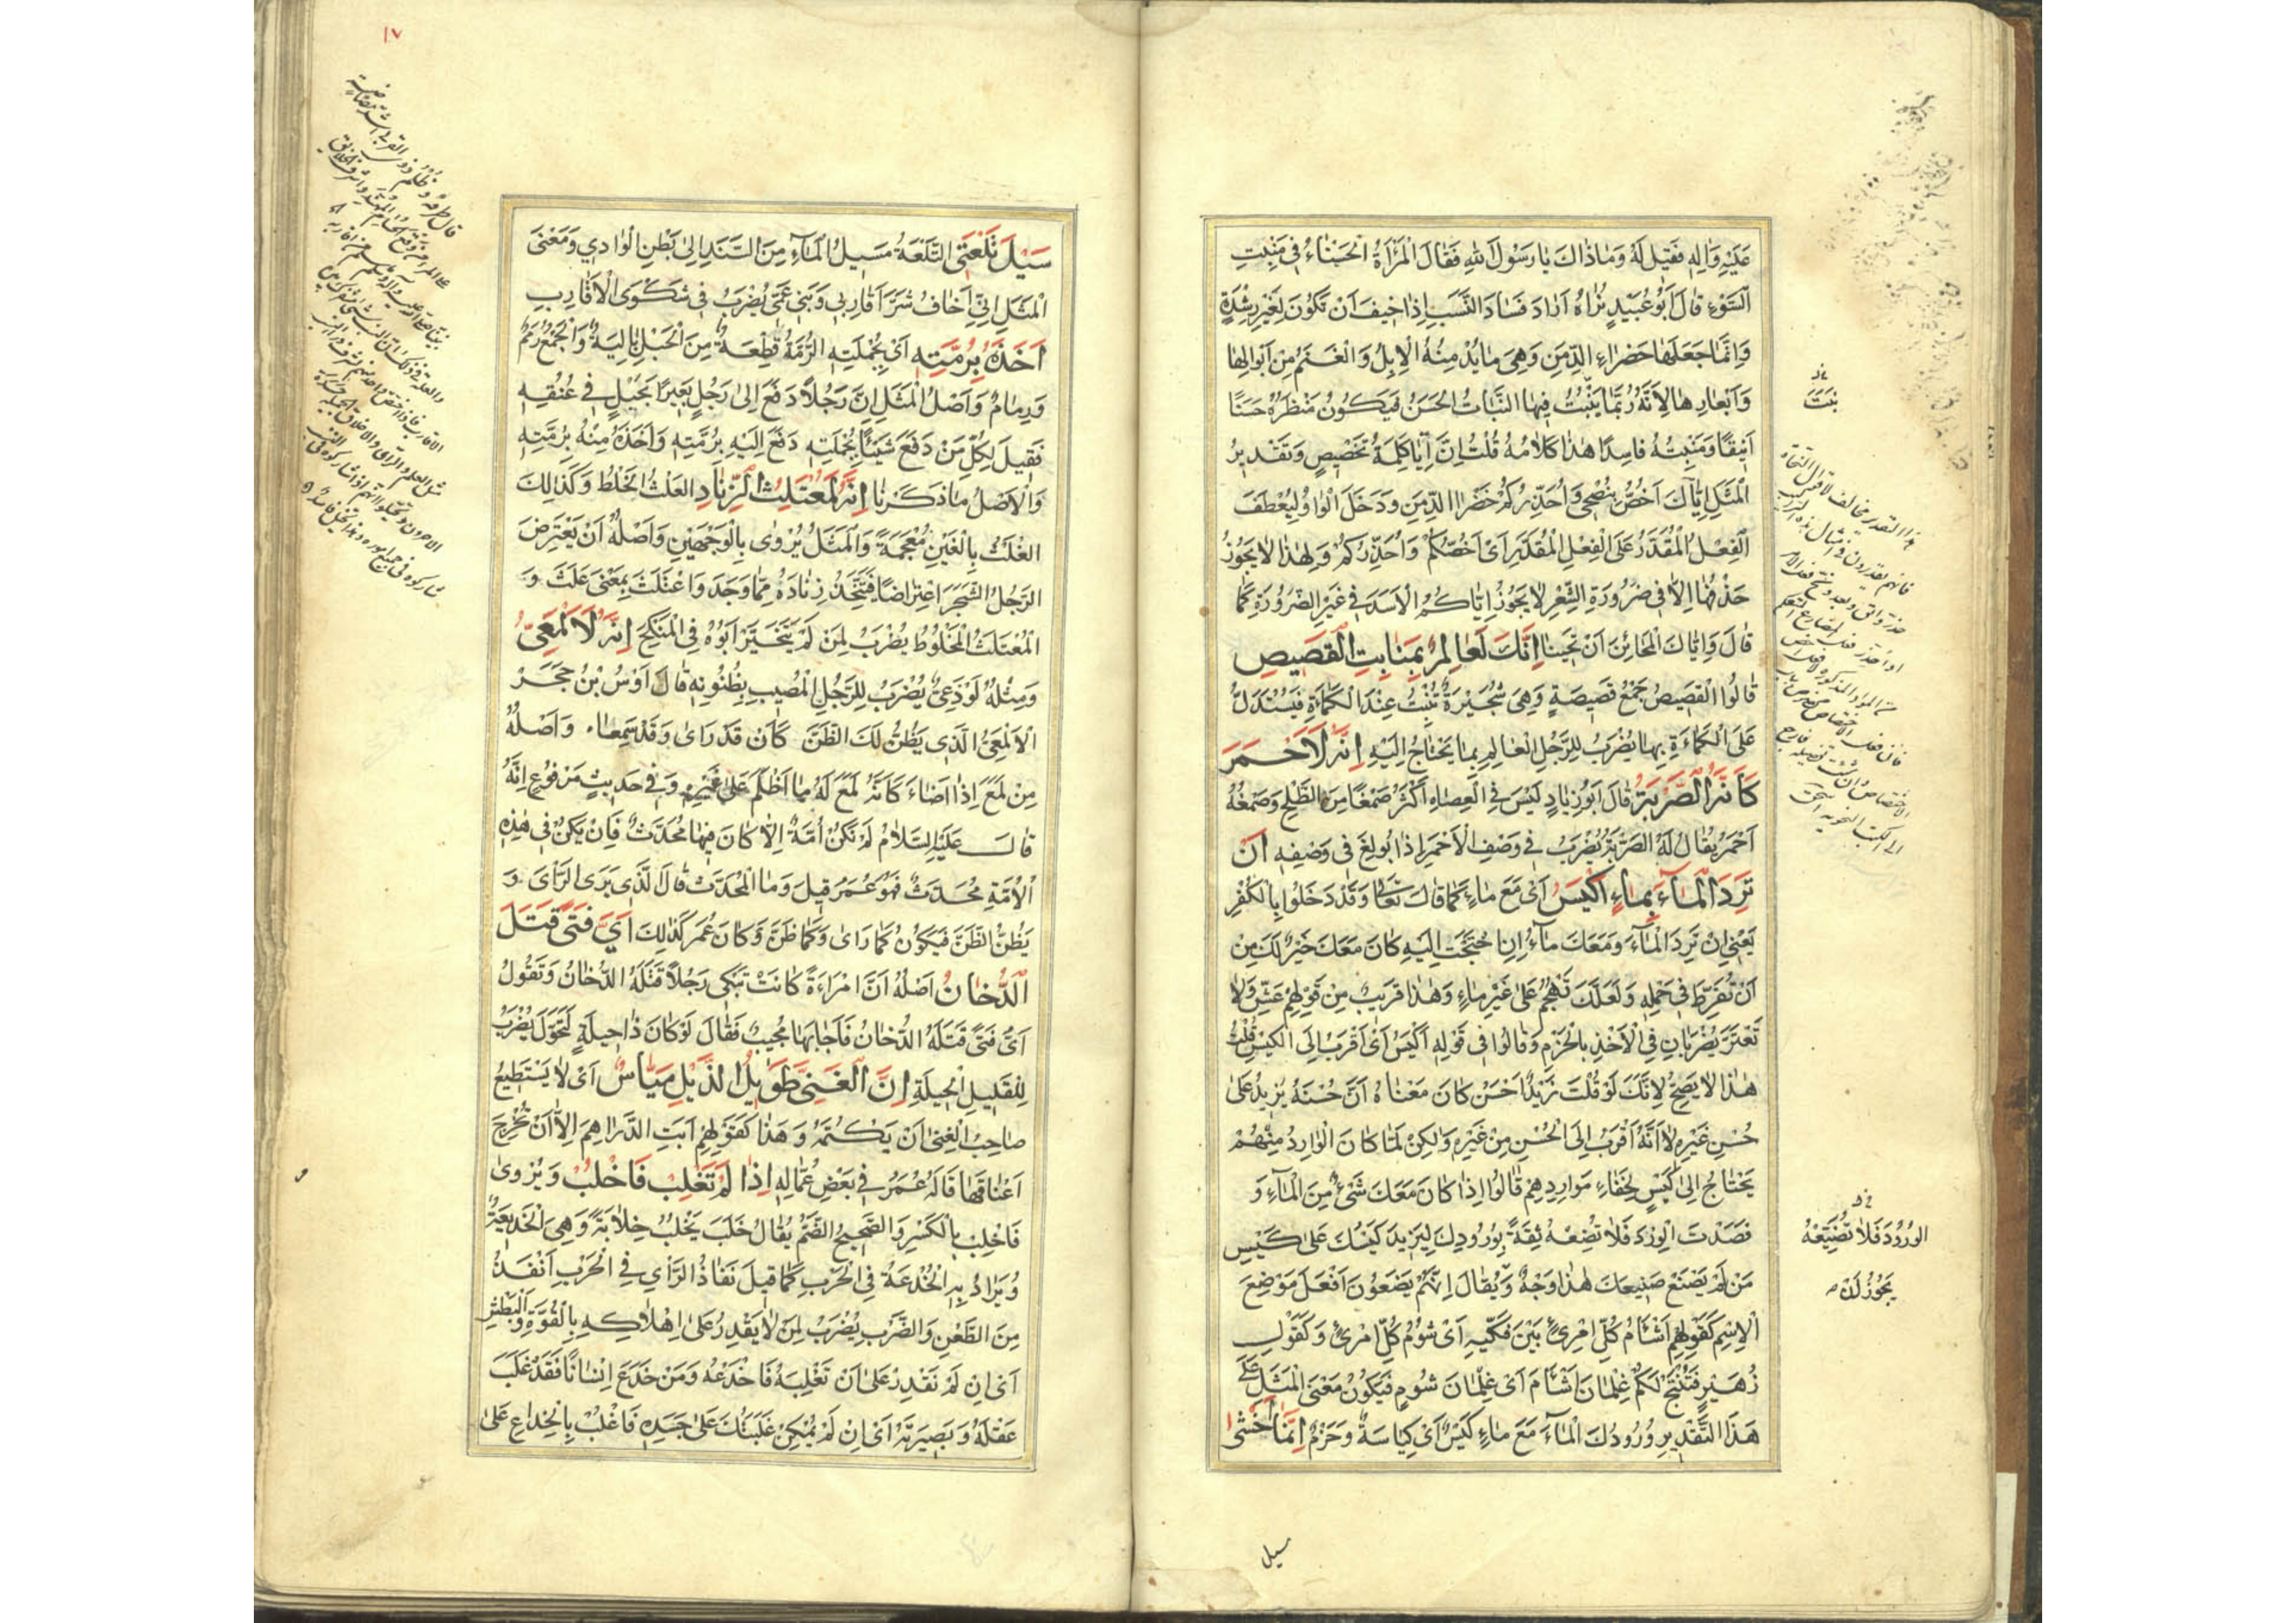 عَلَيْهِ وَاٰلِهِ فَقِيْلَ لَهُ وَمَاذَاكَ يَا رَسُوْلَ اللهِ فَقَالَ الْمَرْأَةُ الْحَسْنَاءُ فِى مَنْبِتِ
السَّوْءِ قَالَ اَبُوْ عُبَيْدٍ نُرَاهُ اَرَادَ فَسَادَ النَّسَبِ اِذَا خِيْفَ اَنْ تَكُوْنَ لِغَيْرِ رِشْدَةٍ
وَاِنَّمَا جَعَلَهَا خَضْرَاءَ الدِّمَنِ وَهِىَ مَا يُدْمِنُهُ الْاِبِلُ وَالْغَنَمُ مِنْ اَبْوَالِهَا
وَاَبْعَارِهَا لِاَنَّهُ رُبَّمَا يَنْبُتُ فِيْهَا النَّبَاتُ الْحَسَنُ فَيَكُوْنُ مَنْظَرُهُ حَسَنًا
اَنِيْقًا وَمَنْبِتُهُ فَاسِدًا هٰذَا كَلَامُهُ قُلْتُ اِنَّ اِيَّا كَلِمَةُ تَخْصِيْصٍ وَتَقْدِيْرُ
الْمَثَلِ اِيَّاكَ اَخُصُّ بِنُصْحِى وَاُحَذِّرُكُمْ خَضْرَاءَ الدِّمَنِ وَدَخَلَ الْوَاوُ لِيُعْطَفَ
الْفِعْلُ الْمُقَدَّرُ عَلَى الْفِعْلِ الْمُقَدَّرِ اَىْ اَخُصُّكُمْ وَاُحَذِّرُكُمْ وَلِهٰذَا لَا يَجُوْزُ
حَذْفُهَا اِلَّا فِى ضَرُوْرَةِ الشِّعْرِ لَا يَجُوْزُ اِيَّاكُمُ الْاَسَدَ فِى غَيْرِ الضَّرُوْرَةِ كَمَا
قَالَ وَاِيَّاكَ الْمَحَائِنَ اَنْ تَحِيْنَا اِنَّكَ لَعَالِمٌ بِمَنَابِتِ الْقَصِيْصِ
قَالُوا الْقَصِيْصُ جَمْعُ قَصِيْصَةٍ وَهِىَ شُجَيْرَةٌ تَنْبُتُ عِنْدَ الْكَمْأَةِ فَيُسْتَدَلُّ
عَلَى الْكَمْأَةِ بِهَا يُضْرَبُ لِلرَّجُلِ الْعَالِمِ بِمَا يَحْتَاجُ اِلَيْهِ اِنَّهُ لَاَحْمَرُ
كَاَنَّهُ الصَّرْبَةُ قَالَ اَبُوْ زِيَادٍ لَيْسَ فِى الْعِضَاهِ اَكْثَرُ صَمْغًا مِنَ الطَّلْحِ وَصَمْغُهُ
اَحْمَرُ يُقَالُ لَهُ الصَّرْبَةُ يُضْرَبُ فِى وَصْفِ الْاَحْمَرِ اِذَا بُوْلِغَ فِى وَصْفِهِ اَنْ
تَرِدَ الْمَاءَ بِمَاءٍ اَكْيَسُ اَىْ مَعَ مَاءٍ كَمَا قَالَ تَعَالٰى وَقَدْ دَخَلُوْا بِالْكُفْرِ
يَعْنِى اِنْ تَرِدِ الْمَاءَ وَمَعَكَ مَاءٌ اِنِ احْتَجْتَ اِلَيْهِ كَانَ مَعَكَ خَيْرٌ لَكَ مِنْ
اَنْ تُفَرِّطَ فِى حَمْلِهِ وَلَعَلَّكَ تَهْجُمُ عَلٰى غَيْرِ مَاءٍ وَهٰذَا قَرِيْبٌ مِنْ قَوْلِهِمْ عَشِّ وَلَا
تَغْتَرَّ يُضْرَبَانِ فِى الْاَخْذِ بِالْحَزْمِ وَقَالُوْا فِى قَوْلِهِ اَكْيَسُ اَىْ اَقْرَبُ اِلَى الْكَيْسِ قُلْتُ
هٰذَا لَا يَصِحُّ لِاَنَّكَ لَوْ قُلْتَ زَيْدٌ اَحْسَنُ كَانَ مَعْنَاهُ اَنَّ حُسْنَهُ يَزِيْدُ عَلٰى
حُسْنِ غَيْرِهِ لَا اَنَّهُ اَقْرَبُ اِلَى الْحُسْنِ مِنْ غَيْرِهِ وَلٰكِنْ لَمَّا كَانَ الْوَارِدُ مِنْهُمْ
يَحْتَاجُ اِلٰى كَيْسٍ لِخَفَاءِ مَوَارِدِهِمْ قَالُوْا اِذَا كَانَ مَعَكَ شَىْءٌ مِنَ الْمَاءِ وَ
قَصَدْتَ الْوِرْدَ فَلَا تُضِعْهُ ثِقَةً بِوُرُوْدِكَ لِيَزِيْدَ كَيْسُكَ عَلٰى كَيْسِ
مَنْ لَمْ يَصْنَعْ صَنِيْعَكَ هٰذَا وَجْهٌ وَيُقَالُ اِنَّهُمْ يَضَعُوْنَ اَفْعَلَ مَوْضِعَ
الْاِسْمِ كَقَوْلِهِمْ اَشْاَمُ كُلِّ امْرِئٍ بَيْنَ فَكَّيْهِ اَىْ شُؤْمُ كُلِّ امْرِئٍ وَكَقَوْلِ
زُهَيْرٍ فَتُنْتِجْ لَكُمْ غِلْمَانَ اَشْاَمَ اَىْ غِلْمَانَ شُومٍ فَيَكُوْنُ مَعْنَى الْمَثَلِ عَلٰى
هَذَا التَّقْدِيْرِ وُرُوْدُكَ الْمَاءَ مَعَ مَاءٍ كَيْسٌ اَىْ كِيَاسَةٌ وَحَزْمٌ اِنَّمَا اَخْشٰى
يَنْبُتُ
الوُرُوْدَ فَلَا تُضَيِّعْهُ
يَجُوْزُ لَكَ
سيل
١٧
سَيْلَ تَلْعَتِى التَّلْعَةُ مَسِيْلُ الْمَاءِ مِنَ السَّنَدِ اِلٰى بَطْنِ الْوَادِى وَمَعْنَى
الْمَثَلِ اِنِّى اَخَافُ شَرَّ اَقَارِبِى وَبَنِى عَمِّى يُضْرَبُ فِى شَكْوَى الْاَقَارِبِ
اَخَذَهُ بِرُمَّتِهِ اَىْ بِجُمْلَتِهِ الرُّمَّةُ قِطْعَةٌ مِنَ الْحَبْلِ بَالِيَةٌ وَالْجَمْعُ رُمَمٌ
وَرِمَامٌ وَاَصْلُ الْمَثَلِ اِنَّ رَجُلًا دَفَعَ اِلٰى رَجُلٍ بَعِيْرًا بِحَبْلٍ فِى عُنُقِهِ
فَقِيْلَ لِكُلِّ مَنْ دَفَعَ شَيْئًا بِجُمْلَتِهِ دَفَعَ اِلَيْهِ بِرُمَّتِهِ وَاَخَذَهُ مِنْهُ بِرُمَّتِهِ
وَالْاَصْلُ مَا ذَكَرْنَا اِنَّهُ لَمُعْتَلِثُ الزِّنَادِ العَلْثُ الْخَلْطُ وَكَذٰلِكَ
الغَلْثُ بِالْغَيْنِ مُعْجَمَةً وَالْمَثَلُ يُرْوٰى بِالْوَجْهَيْنِ وَاَصْلُهُ اَنْ يَعْتَرِضَ
الرَّجُلُ الشَّجَرَ اعْتِرَاضًا فَيَتَّخِذَ زِنَادَهُ مِمَّا وَجَدَ وَاعْتَلَثَ بِمَعْنَى عَلَثَ وَ
الْمُعْتَلَثُ الْمَخْلُوْطُ يُضْرَبُ لِمَنْ لَمْ يَتَخَيَّرْ اَبُوْهُ فِى الْمَنْكِحِ اِنَّهُ لَاَلْمَعِىٌّ
وَمِثْلُهُ لَوْذَعِىٌّ يُضْرَبُ لِلرَّجُلِ الْمُصِيْبِ بِظُنُوْنِهِ قَالَ اَوْسُ بْنُ حَجَرٍ
الْاَلْمَعِىُّ الَّذِى يَظُنُّ لَكَ الظَّنَّ كَاَنْ قَدْ رَاٰى وَقَدْ سَمِعَا وَاَصْلُهُ
مِنْ لَمَعَ اِذَا اَضَاءَ كَاَنَّهُ لَمَعَ لَهُ مَا اَظْلَمَ عَلٰى غَيْرِهِ وَفِى حَدِيْثٍ مَرْفُوْعٍ اِنَّهُ
قَالَ عَلَيْهِ السَّلَامُ لَمْ تَكُنْ اُمَّةٌ اِلَّا كَانَ فِيْهَا مُحَدَّثٌ فَاِنْ يَكُنْ فِى هٰذِهِ
الْاُمَّةِ مُحَدَّثٌ فَهُوَ عُمَرُ قِيْلَ وَمَا الْمُحَدَّثُ قَالَ الَّذِى يَرَى الرَّأْىَ وَ
يَظُنُّ الظَّنَّ فَيَكُوْنُ كَمَا رَاٰى وَكَمَا ظَنَّ وَكَانَ عُمَرُ كَذٰلِكَ اَىَّ فَتًى قَتَلَ
الدُّخَانُ اَصْلُهُ اَنَّ امْرَاَةً كَانَتْ تَبْكِى رَجُلًا قَتَلَهُ الدُّخَانُ وَتَقُوْلُ
اَىُّ فَتًى قَتَلَهُ الدُّخَانُ فَاَجَابَهَا مُجِيْبٌ فَقَالَ لَوْ كَانَ ذَا حِيْلَةٍ لَتَحَوَّلَ يُضْرَبُ
لِلْقَلِيْلِ الْحِيْلَةِ اِنَّ الْغَنِىَّ طَوِيْلُ الذَّيْلِ مَيَّاسٌ اَىْ لَا يَسْتَطِيْعُ
صَاحِبُ الْغِنٰى اَنْ يَكْتُمَهُ وَهٰذَا كَقَوْلِهِمْ اَبَتِ الدَّرَاهِمُ اِلَّا اَنْ تُخْرِجَ
اَعْنَاقَهَا قَالَهُ عُمَرُ فِى بَعْضِ عُمَّالِهِ اِذَا لَمْ تَغْلِبْ فَاخْلُبْ وَيُرْوٰى
فَاخْلِبْ بِالْكَسْرِ وَالصَّحِيْحُ الضَّمُّ يُقَالُ خَلَبَ يَخْلُبُ خِلَابَةً وَهِىَ الْخَدِيْعَةُ
وَيُرَادُ بِهِ الْخُدْعَةُ فِى الْحَرْبِ كَمَا قِيْلَ نَفَاذُ الرَّأْىِ فِى الْحَرْبِ اَنْفَذُ
مِنَ الطَّعْنِ وَالضَّرْبِ يُضْرَبُ لِمَنْ لَا يَقْدِرُ عَلٰى اِهْلَاكِهِ بِالْقُوَّةِ وَالْبَطْشِ
اَىْ اِنْ لَمْ تَقْدِرْ عَلٰى اَنْ تَغْلِبَهُ فَاخْدَعْهُ وَمَنْ خَدَعَ اِنْسَانًا فَقَدْ غَلَبَ
عَقْلَهُ وَبَصِيْرَتَهُ اَىْ اِنْ لَمْ يُمْكِنْ غَلَبَتُكَ عَلٰى جَسَدِهِ فَاغْلُبْ بِالْخِدَاعِ عَلٰى